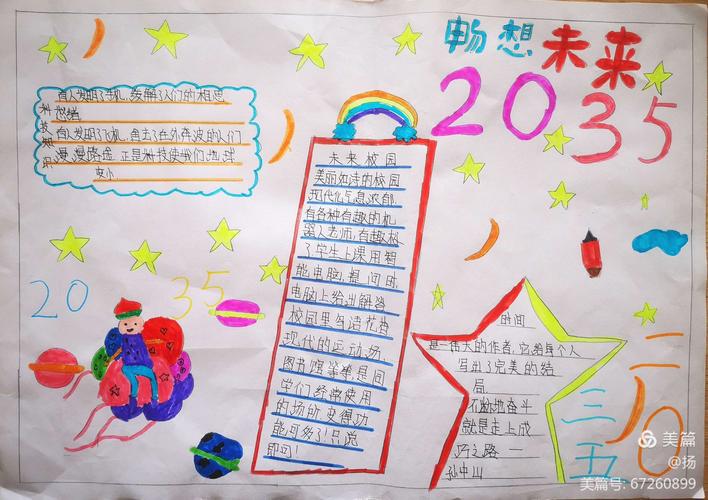 畅想未来
2035
科技知识
有人发明了手机,缓解了人们的相思
愁绪
有人发明了飞机,免去了在外奔波的人们
漫漫路途 正是科技使我们地球
变小
未来校园
美丽如诗的校园
现代化气息浓郁
有各种有趣的机
器人老师,有趣极
了学生上课用智
能电脑,提问时
电脑上给出解答
校园里鸟语花香
现代的运动场,
图书馆等等息间
学们经常使用
的场所变得功
能可多了!只说
即可!
20 35
时间
是一伟大的作者,它给每个人
写出了完美的结
局
不断地奋斗
就是走上成
功之路一
孙中山
二〇三五
美篇
@扬
美篇号: 67260899